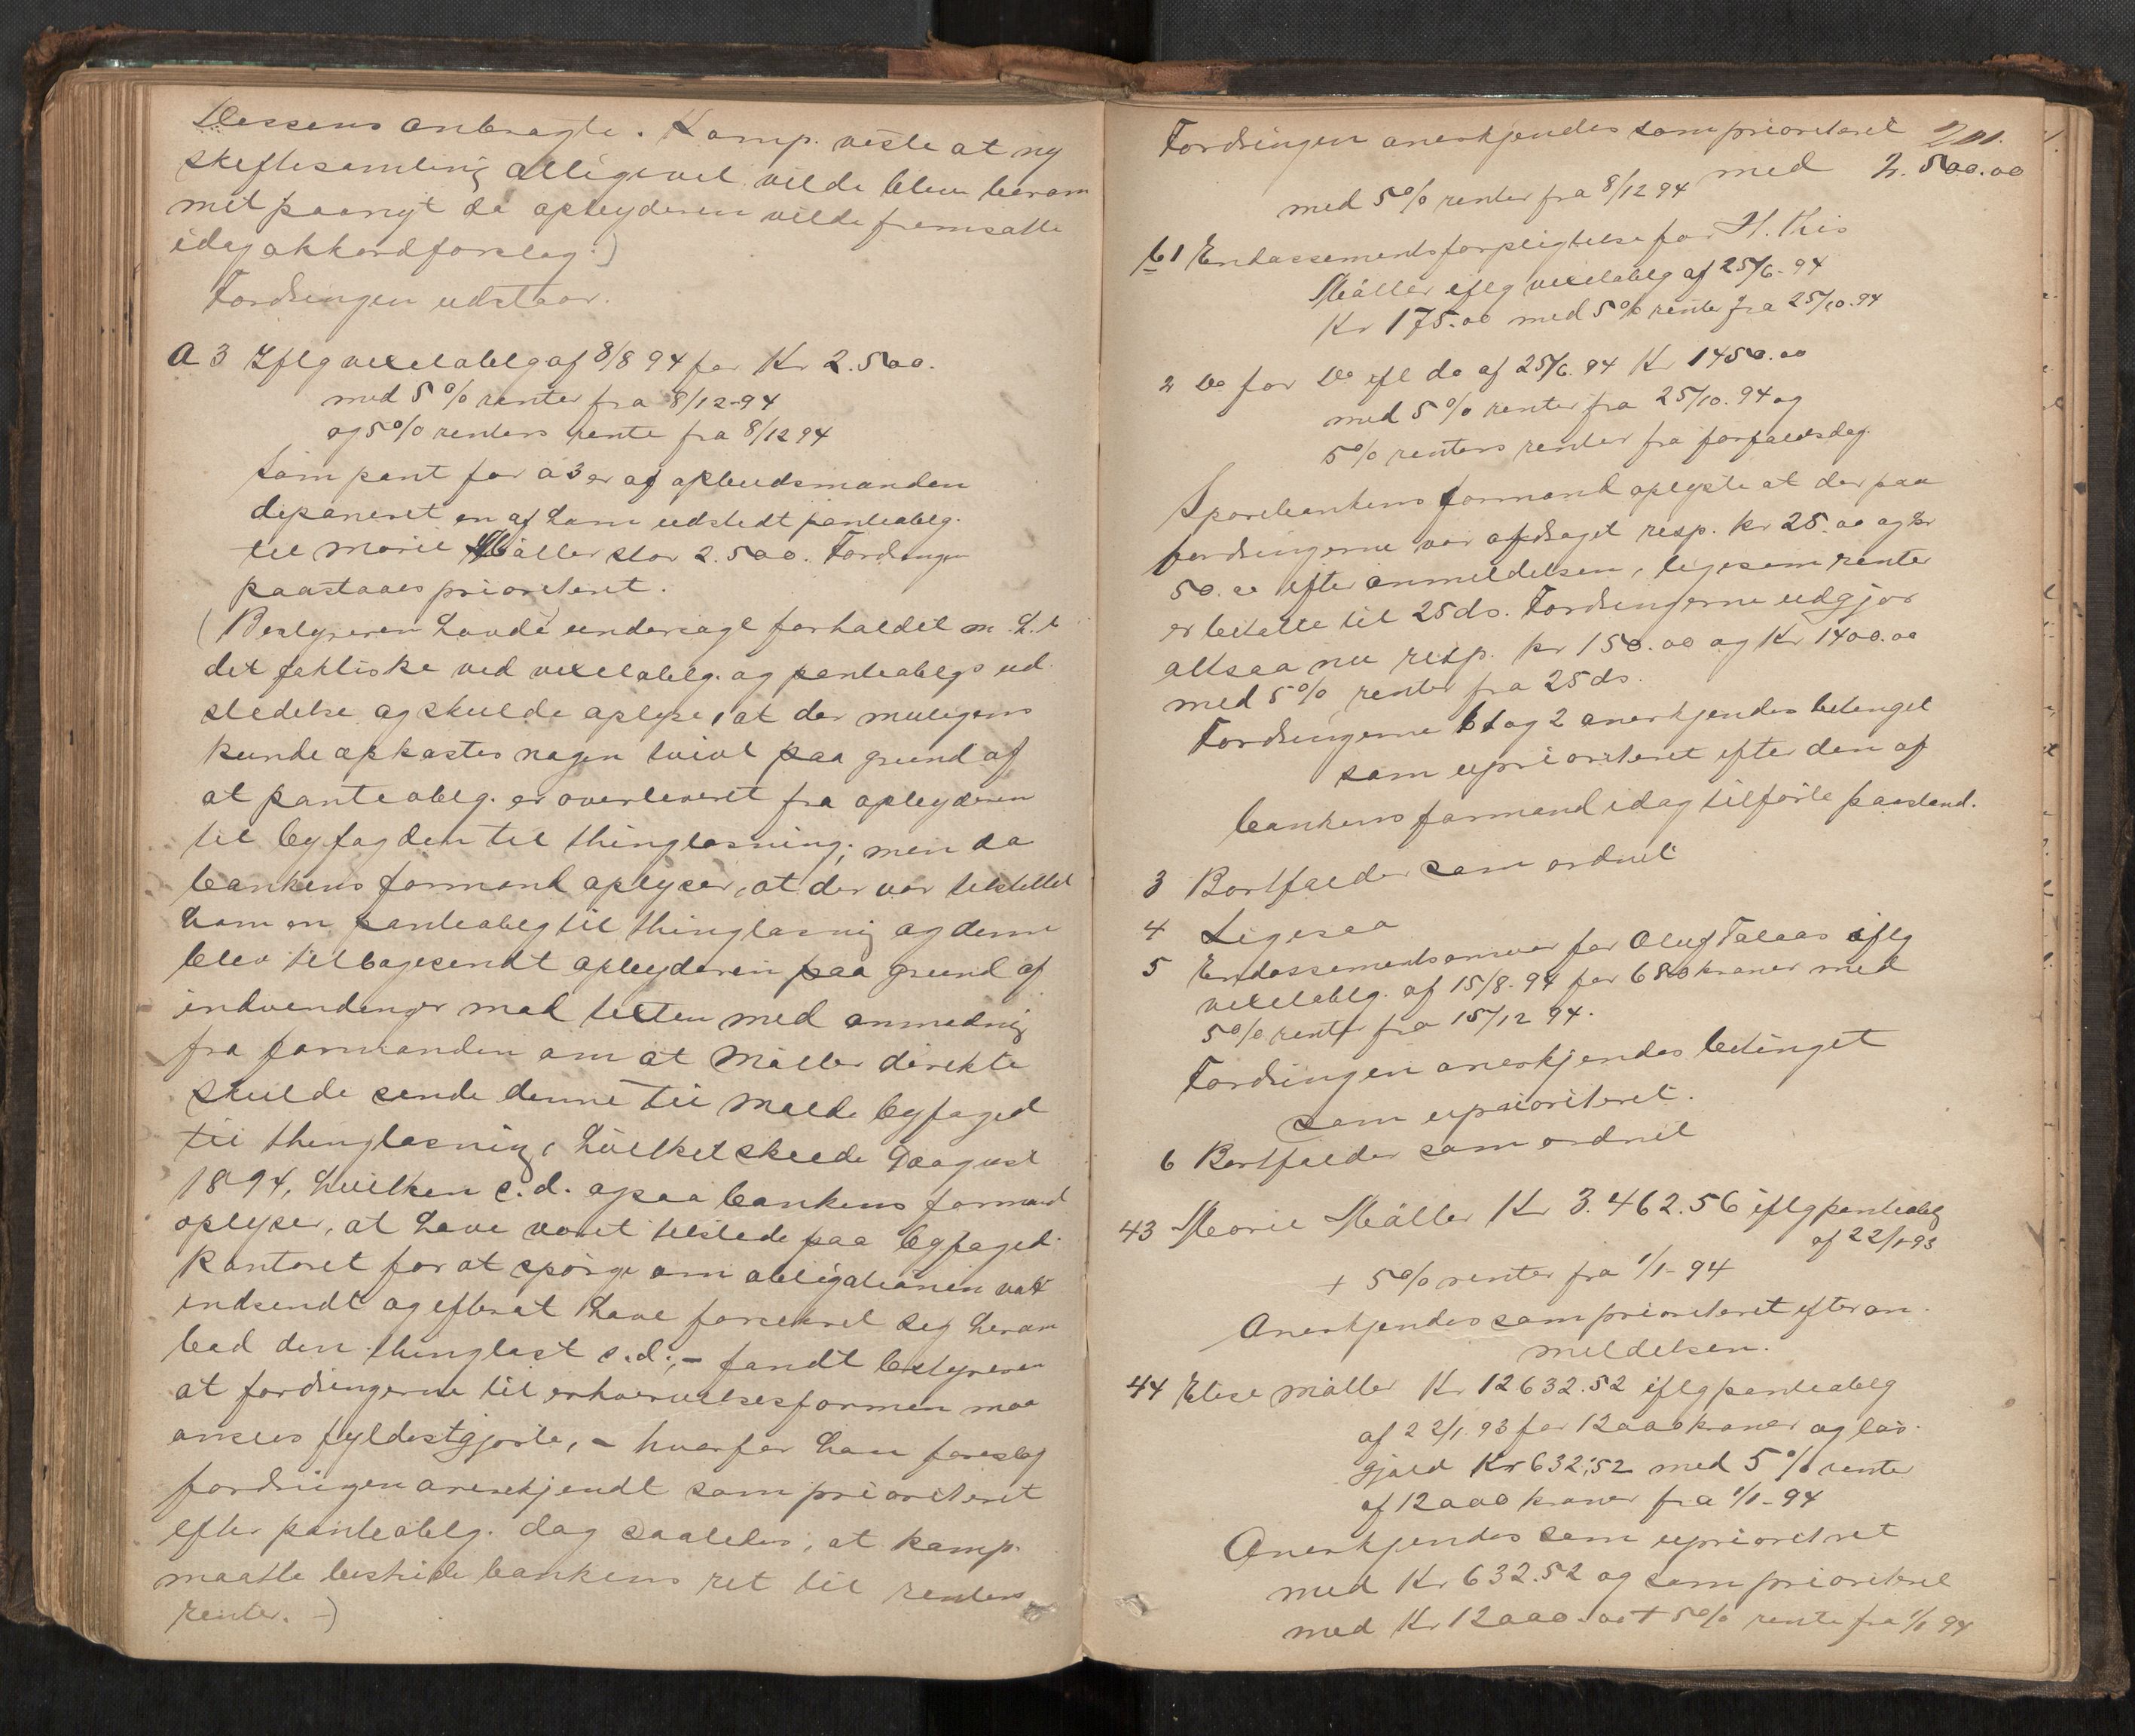 Dessens anbragte. Komp. viste at ny
skiftesamling alligevel vilde blive beram
met paanyt da opbyderen vilde fremsætte
idag akkordforslag.)
Fordringen udstaar.
a 3 Iflg vexeloblg af 8/8 94 for Kr 2.500.
med 5 % renter fra 8/12-94
og 5% renters rente fra 8/12 94
Som pant for a 3 er af opbudsmanden
deponeret en af ham udstedt panteoblg.
til Marie Møller stor 2.500. Fordringen
paastaaes prioriteret.
(Bestyreren havde undersøgt forholdet m. h. t
det faktiske ved vexeloblg. og panteoblgs ud
stedelse og skulde oplyse, at der muligens
kunde opkastes nogen tvivl paa grund af
at panteoblg. er overleveret fra opbyderen
til byfogden til thinglæsning; men da
bankens formand oplyser, at der var tilstillet
ham en panteoblg til thinglæsning og denne
blev tilbagesendt opbyderen paa grund af
indvendinger mod texten med anmodning
fra formanden om at Møller direkte
skulde sende denne til Molde byfoged
til thinglæsning, hvilket skede 9 august
1894, hvilken s. d. ogsaa bankens formand
oplyser, at have været tilstede paa byfoged
kontoret for at spørge om obligationen var
indsendt og efterat have forsikret sig herom
bad den thinglæst s. d., – fandt bestyreren
at fordringerne til erhvervelsesformen maa
ansees fyldestgjorte, – hvorfor han foreslog
fordringen anerkjendt som prioriteret
efter panteoblg. dog saaledes, at komp.
maatte bestride bankens ret til renters
renter. –)
201.
Fordringen anerkjendes som prioriteret
med 2.500.00
med 5 % renter fra 8/12 94
b 1 Endossementsforpligtelse for H. Kis
Møller iflg vexeloblg af 25/6-94
Kr 175.00 med 5 % rente fra 25/10.94
2 Do for Do ifl do af 25/6.94 Kr 1450.00
med 5 % renter fra 25/10.94 og
5% renters renter fra forfaldsdag.
Sparebankens formand oplyste at der paa
fordringerne var afdraget resp. kr 25.00 og kr
50.00 efter anmeldelsen, ligesom renter
er betalte til 25 ds. Fordringerne udgjør
altsaa nu resp. kr 150.00 og Kr 1400.00
med 5 % renter fra 25 ds.
Fordringerne b 1 og 2 anerkjendes betinget
som uprioriteret efter den af
bankens formand idag tilførte paastand.
3 Bortfalder som ordnet
4 Ligesaa
5 Endossementsansvar for Oluf Talaas iflg
vexeloblg. af 15/8-94 for 680 kroner med
5 % rente fra 15/12 94.
Fordringen anerkjendes betinget
som uprioriteret.
6 Bortfalder som ordnet
43 Marie Møller Kr 3.462.56 iflg panteoblg
af 22/1-93
+ 5 % renter fra 1/1-94
Anerkjendes som prioriteret efter an-
meldelsen.
44 Elise Møller Kr 12632.52 iflg panteoblg
af 22/1.93 for 12000 kroner og løs
gjæld Kr 632,52 med 5 % renter
af 12000 kroner fra 1/1-94
Anerkjendes som uprioritret
med Kr 632.52 og som prioriteret
med Kr 12000.00 + 5% rente fra 1/1 94